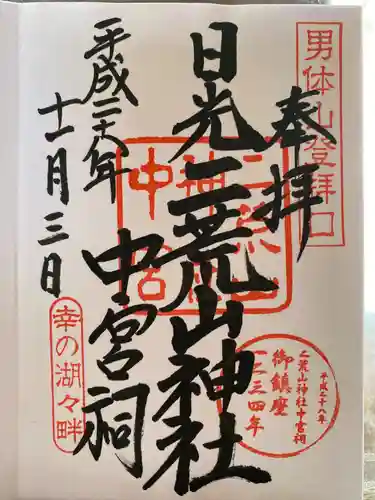 男体山登拝口
奉拝
日光二荒山神社
中宮祠
平成二十八年
十一月三日
幸の湖々畔
平成二十八年
二荒山神社中宮祠
御鎮座
一二三四年